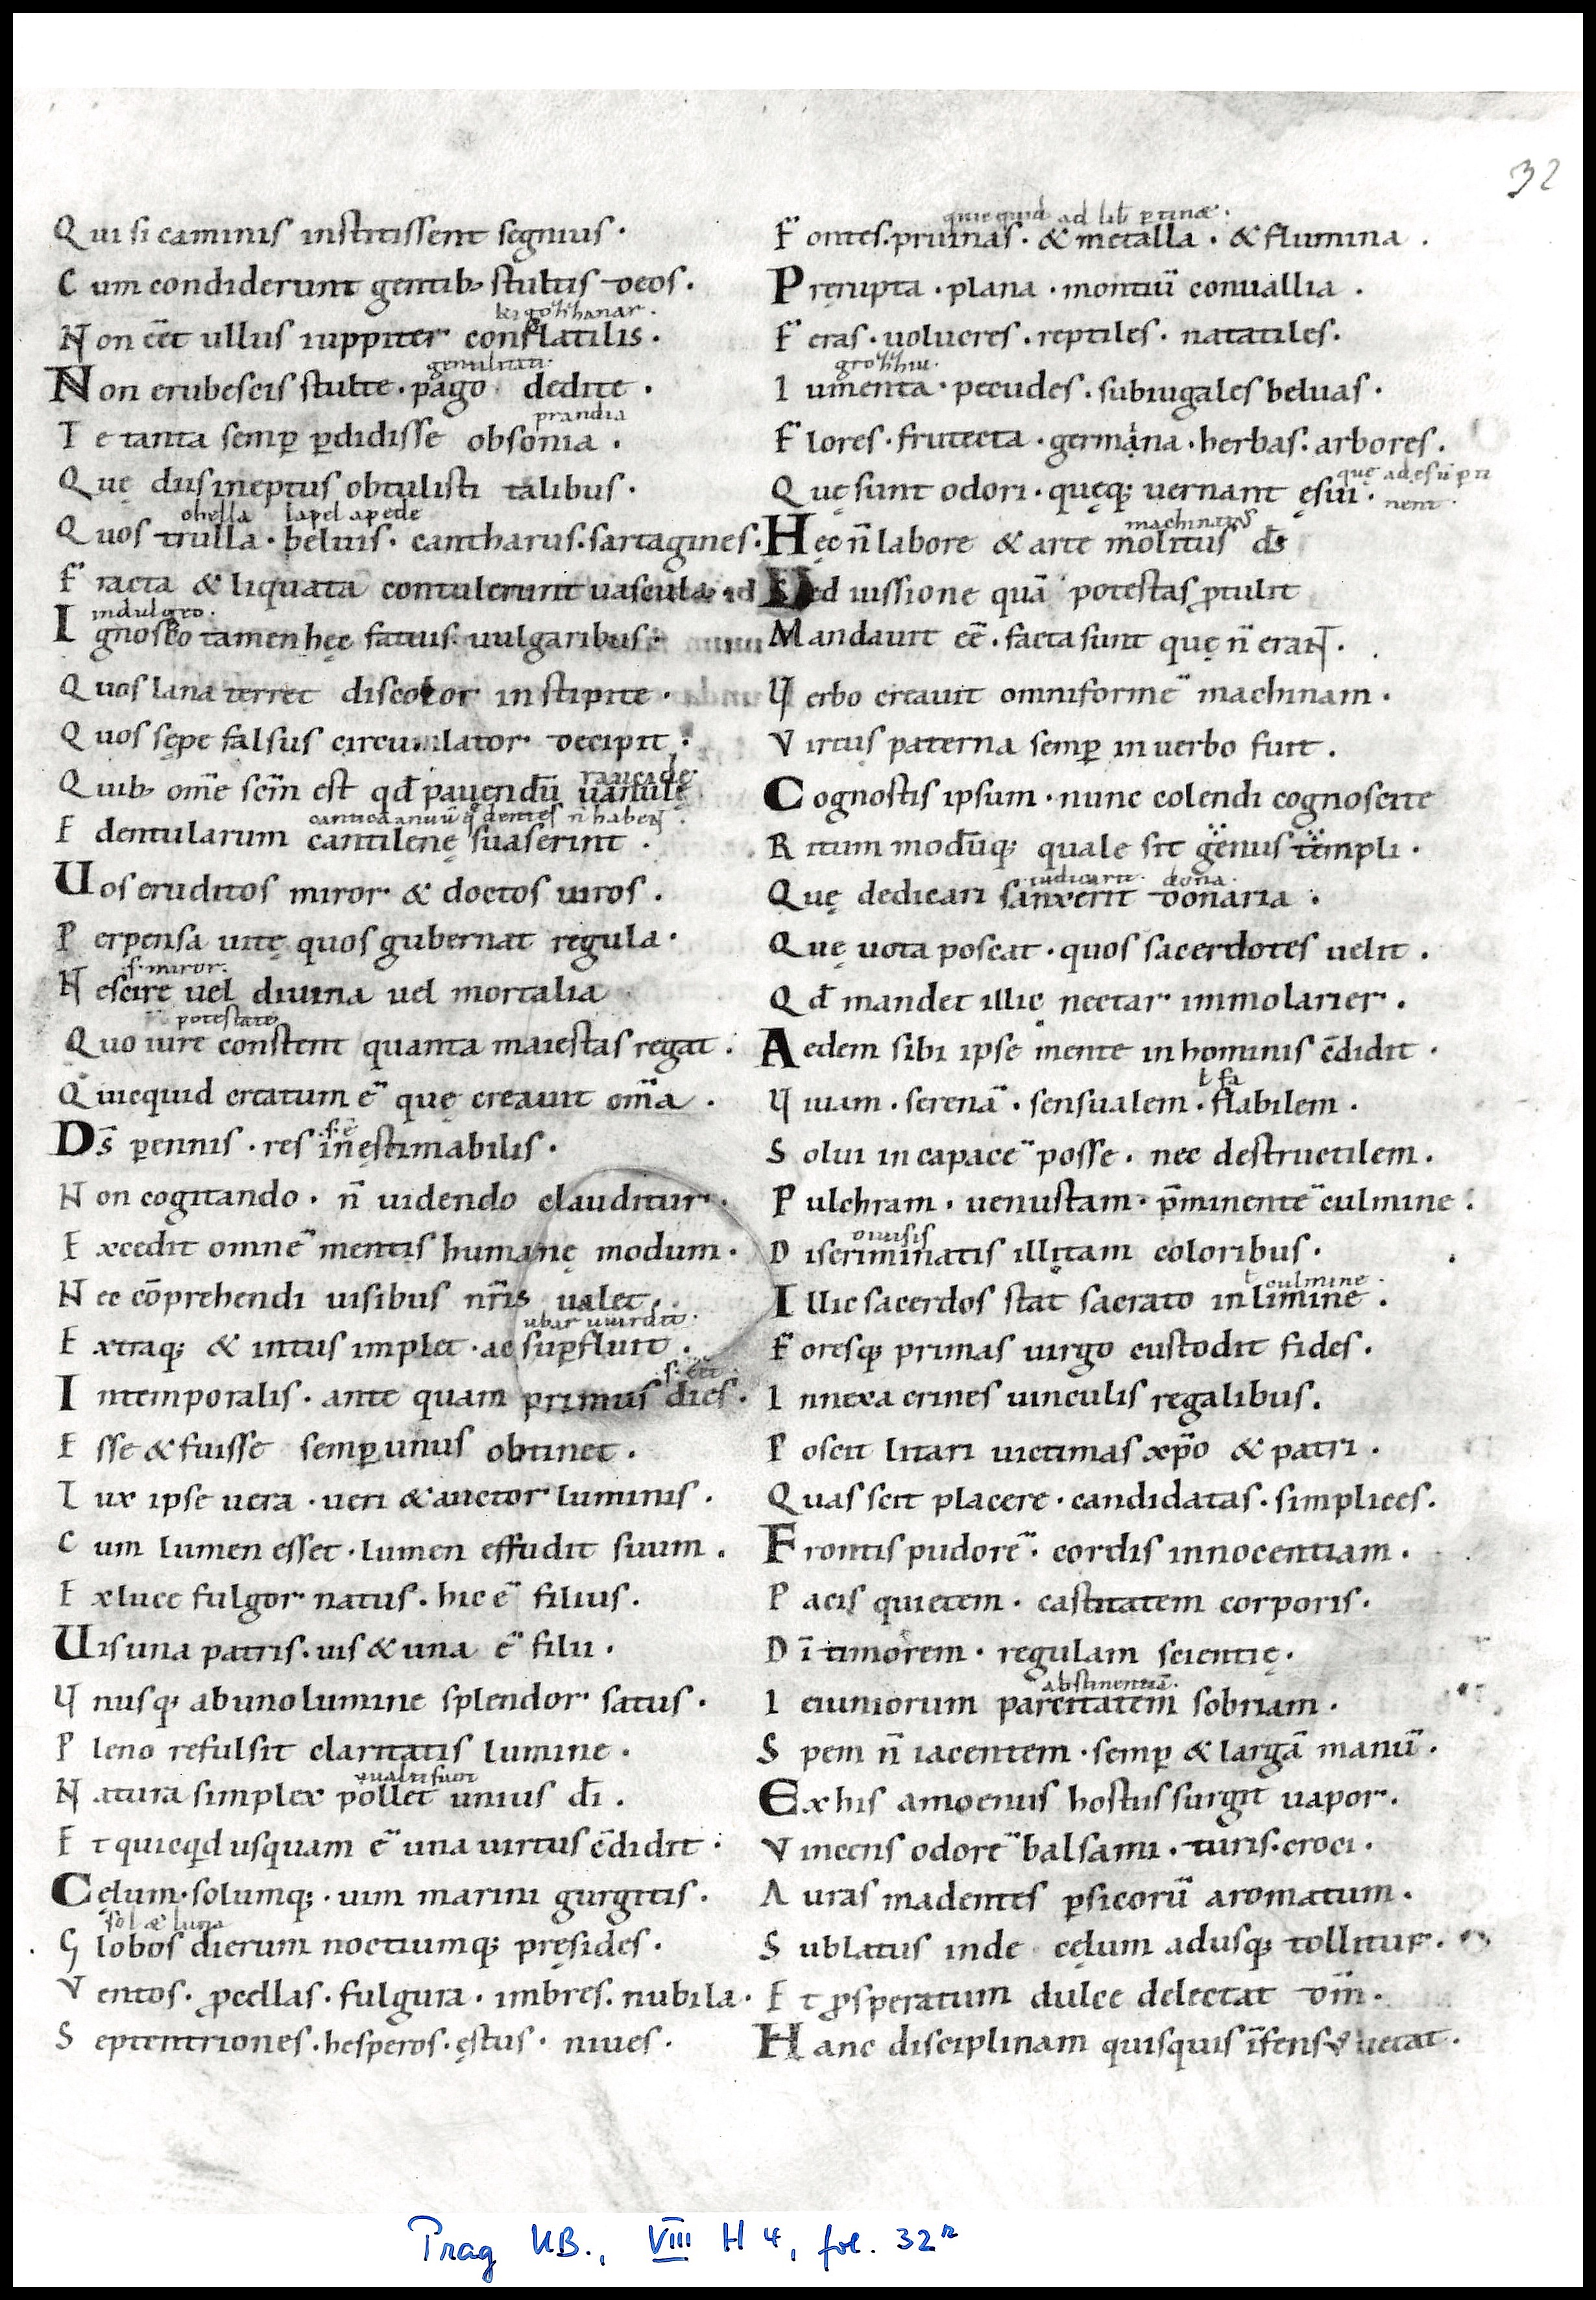 32
Qui si caminis institissent segnius·
Cum condiderunt gentib; stultis deos·
kigozzhanar·
Non eēt ullus iuppiter conflatilis·
gentilitati·
Non erubescis stulte·pago dedite·
prandia
Te tanta semꝑ ꝑdidisse obsonia·
Quę diis ineptus obtulisti talibus·
chella lapel apede
Quos trulla·peluis·cantharus·sartagines·
Fracta & liquata contulerunt uascula
indulgeo·
Ignosco tamen hęc fatuis uulgaribus·
Quos lana terret discolor in stipite·
Quos sępe falsus circumlator decipit·
rancidę·
Quib; om̄e scm̄ est qd̄ pauendū uanulę
cantica anuū q̄ dentes n̄ habent·
Edentularum cantilenę suaserint·
Uos eruditos miror & doctos uiros·
Perpensa uitę quos gubernat regula·
·s·miror·
Nescire uel diuina uel mortalia
potestate
Quo iure constent quanta maiestas regat·
Quicquid creatum ē quę creauit om̄a·
·s·ē
Ds̄ ꝑennis·res inęstimabilis·
Non cogitando·n̄ uidendo clauditur·
Excedit omnē mentis humanę modum·
Nec cōprehendi uisibus nr̄is ualet·
ubar uuirdit·
Extraq; & intus implet·ac suꝑfluit·
·s·eēt
Intemporalis·ante quam primus dies·
Esse & fuisse semꝑ unus obtinet·
Lux ipse uera·ueri & auctor luminis·
Cum lumen esset·lumen effudit suum·
Ex luce fulgor natus·hic ē filius·
Uis una patris·uis & una ē filii·
Unusq; ab uno lumine splendor satus·
Pleno refulsit claritatis lumine·
Natura simplex pollet unius dī·
Et quicqd usquam ē una uirtus c̄didit·
Cęlum·solumq;·uim marini gurgitis·
sol & luna
Globos dierum noctiumq; pręsides·
Ventos·ꝓcellas·fulgura·imbres·nubila·
Septentriones·hesperos·ęstus·niues·
quicquid ad lib̄ ꝑtinæ·
Fontes·pruinas·& metalla·& flumina·
Pręrupta·plana·montiū conuallia·
Feras·uolucres·reptiles·natatiles·
grozziu·
Iumenta·pecudes·subiugales beluas·
Flores·frutecta·germina·herbas·arbores·
quę ad esū ꝑti
Quę sunt odori·quęq; uernant ęsui·
nent·
machinatus
Hęc n̄ labore & arte molitus ds̄
Sed iussione quā potestas ꝓtulit
Mandauit eē·facta sunt quę n̄ erant·
Uerbo creauit omniformē machinam·
Virtus paterna semꝑ in uerbo fuit·
Cognostis ipsum·nunc colendi cognoscite
Ritum modūq; quale sit genus templi·
iudicarit· dona·
Quę dedicari sanxerit donaria·
Quę uota poscat·quos sacerdotes uelit·
Qd̄ mandet illic nectar immolarier·
Aedem sibi ipse mente in hominis c̄didit·
ł fa
Uiuam·serenā·sensualem·flabilem·
Solui incapacē posse·nec destructilem·
Pulchram·uenustam·p̄minentē culmine·
diuisis
Discriminatis illitam coloribus·
ł culmine·
Illic sacerdos stat sacrato in limine·
Foresq; primas uirgo custodit fides·
Innexa crines uinculis regalibus·
Poscit litari uictimas xp̄o & patri·
Quas scit placere·candidatas·simplices·
Frontis pudorē·cordis innocentiam·
Pacis quietem·castitatem corporis·
Dī timorem·regulam scientię·
abstinentiā·
Ieiuniorum parcitatem sobriam·
Spem n̄ iacentem·semꝑ & largā manū·
Ex his amoenus hostiis surgit uapor·
Vincens odorē balsami·turis·croci·
Auras madentes ꝑsicorū aromatum·
Sublatus inde cęlum adusq; tollitur·
Et ꝓsperatum dulce delectat dm̄·
Hanc disciplinam quisquis īfensus uetat·
Prag UB., VIII H 4, fol. 32r